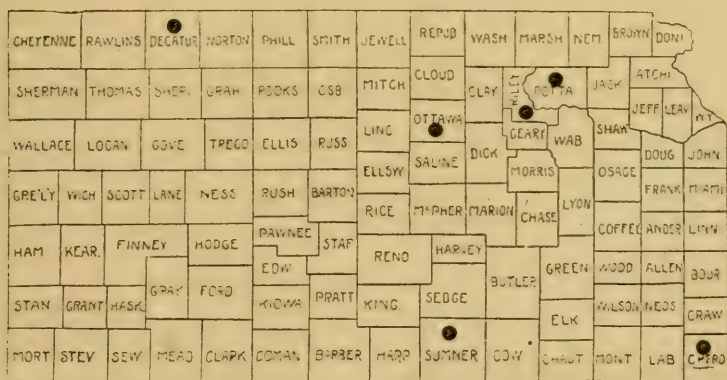 CHEYENNE RAWLINS DECATUR NORTON PHILL SMITH JEWELL REPUB WASH MARSH NEM. BROWN DONI.
SHERMAN THOMAS SHER. GRAH. ROOKS OSB MITCH CLOUD CLAY RILEY POTTA JACK ATCHI
JEFF LEAV W.Y.
WALLACE LOGAN GOVE TREGO ELLIS RUSS LINC OTTAWA GEARY WAB SHAW
ELLSW SALINE DICK MORRIS OSAGE DOUG JOHN
GRE'LY WICH SCOTT LANE NESS RUSH BARTON RICE M'PHER MARION CHASE LYON FRANK MIAMI
HAM KEAR. FINNEY HODGE PAWNEE STAF RENO HARVEY COFFEE ANDER LINN
EDW BUTLER GREEN WOOD ALLEN BOUR
STAN GRANT HASK. GRAY FORD KIOWA PRATT KING. SEDGE ELK WILSON NEOS CRAW
MORT STEV SEW MEAD CLARK COMAN BARBER HARP SUMNER COW CHAUT MONT LAB CHERO